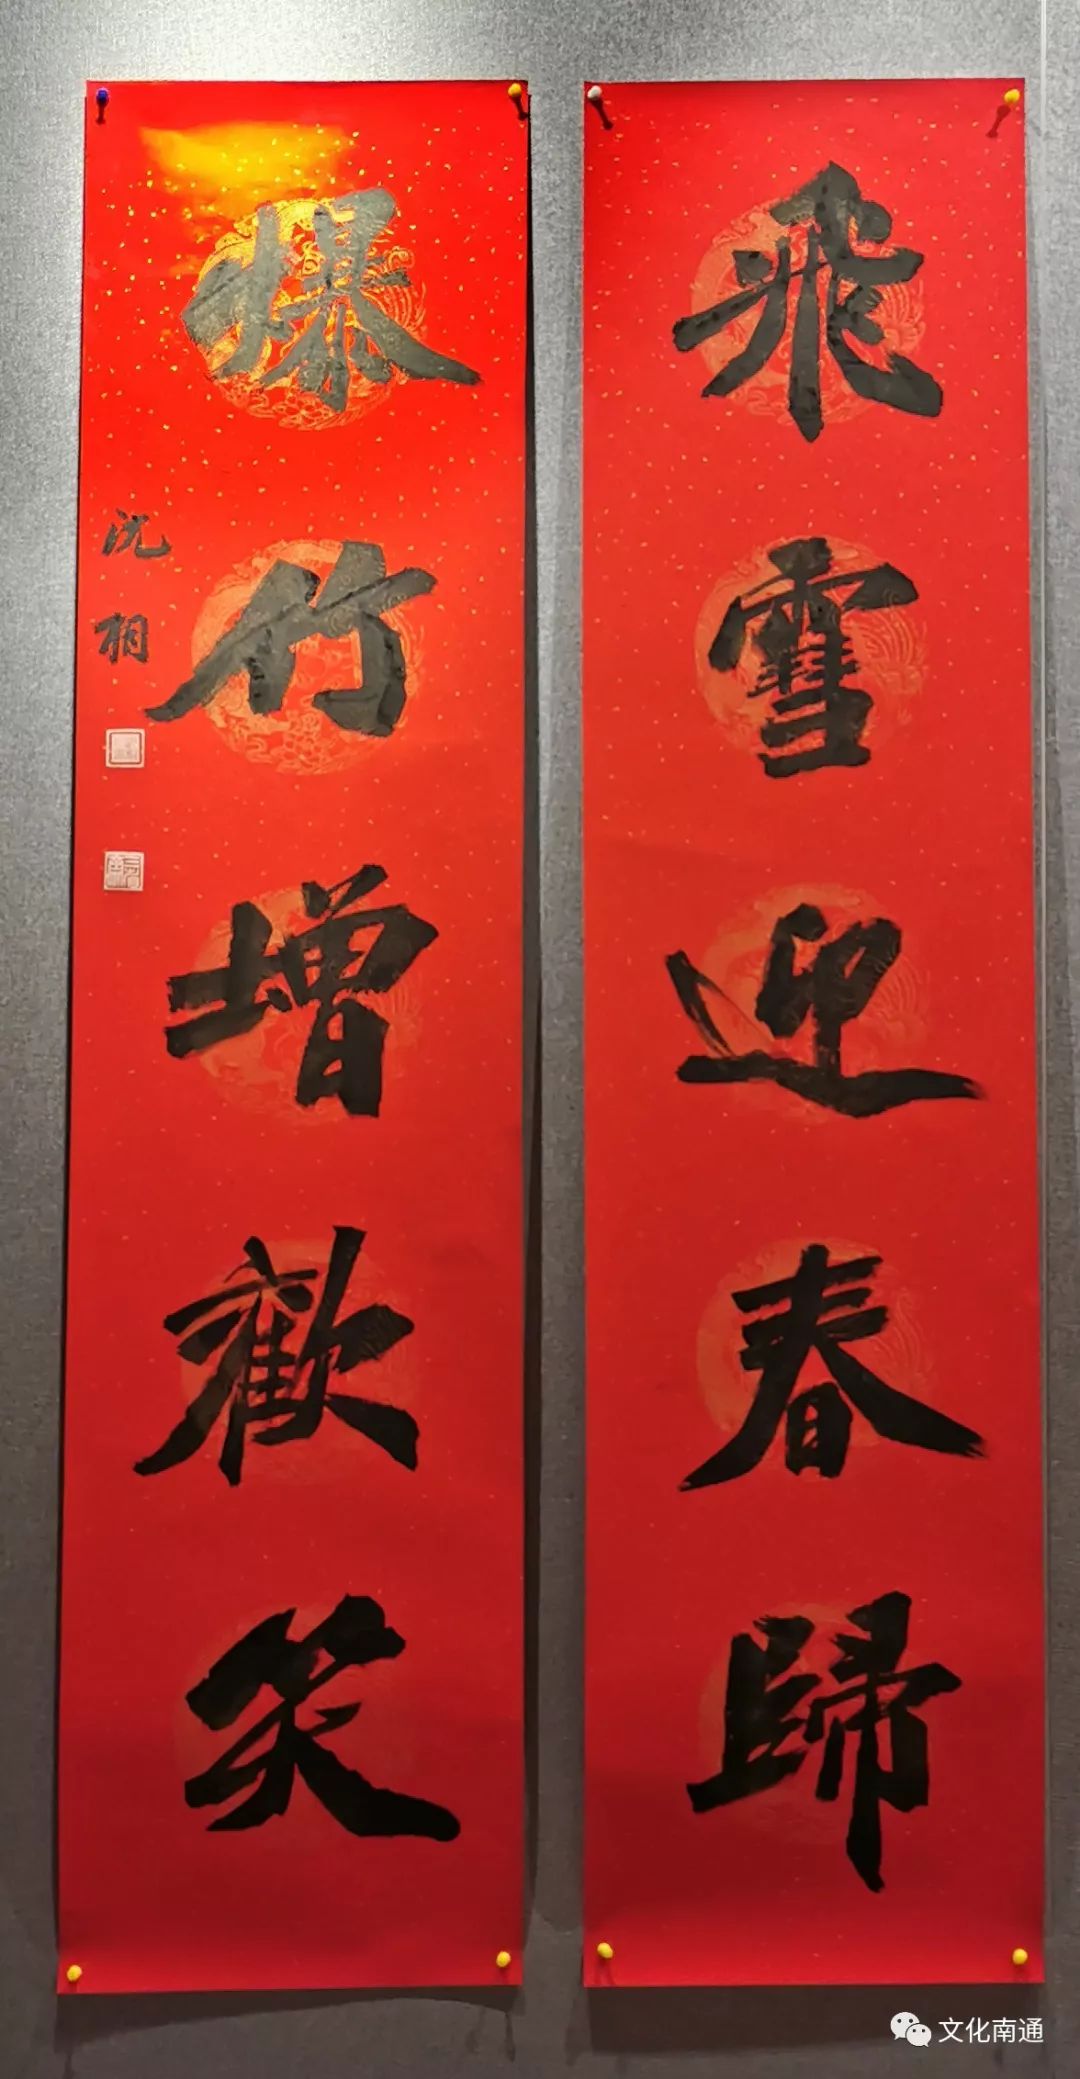 飛雪迎春歸
爆竹增歡笑
沈桐
文化南通